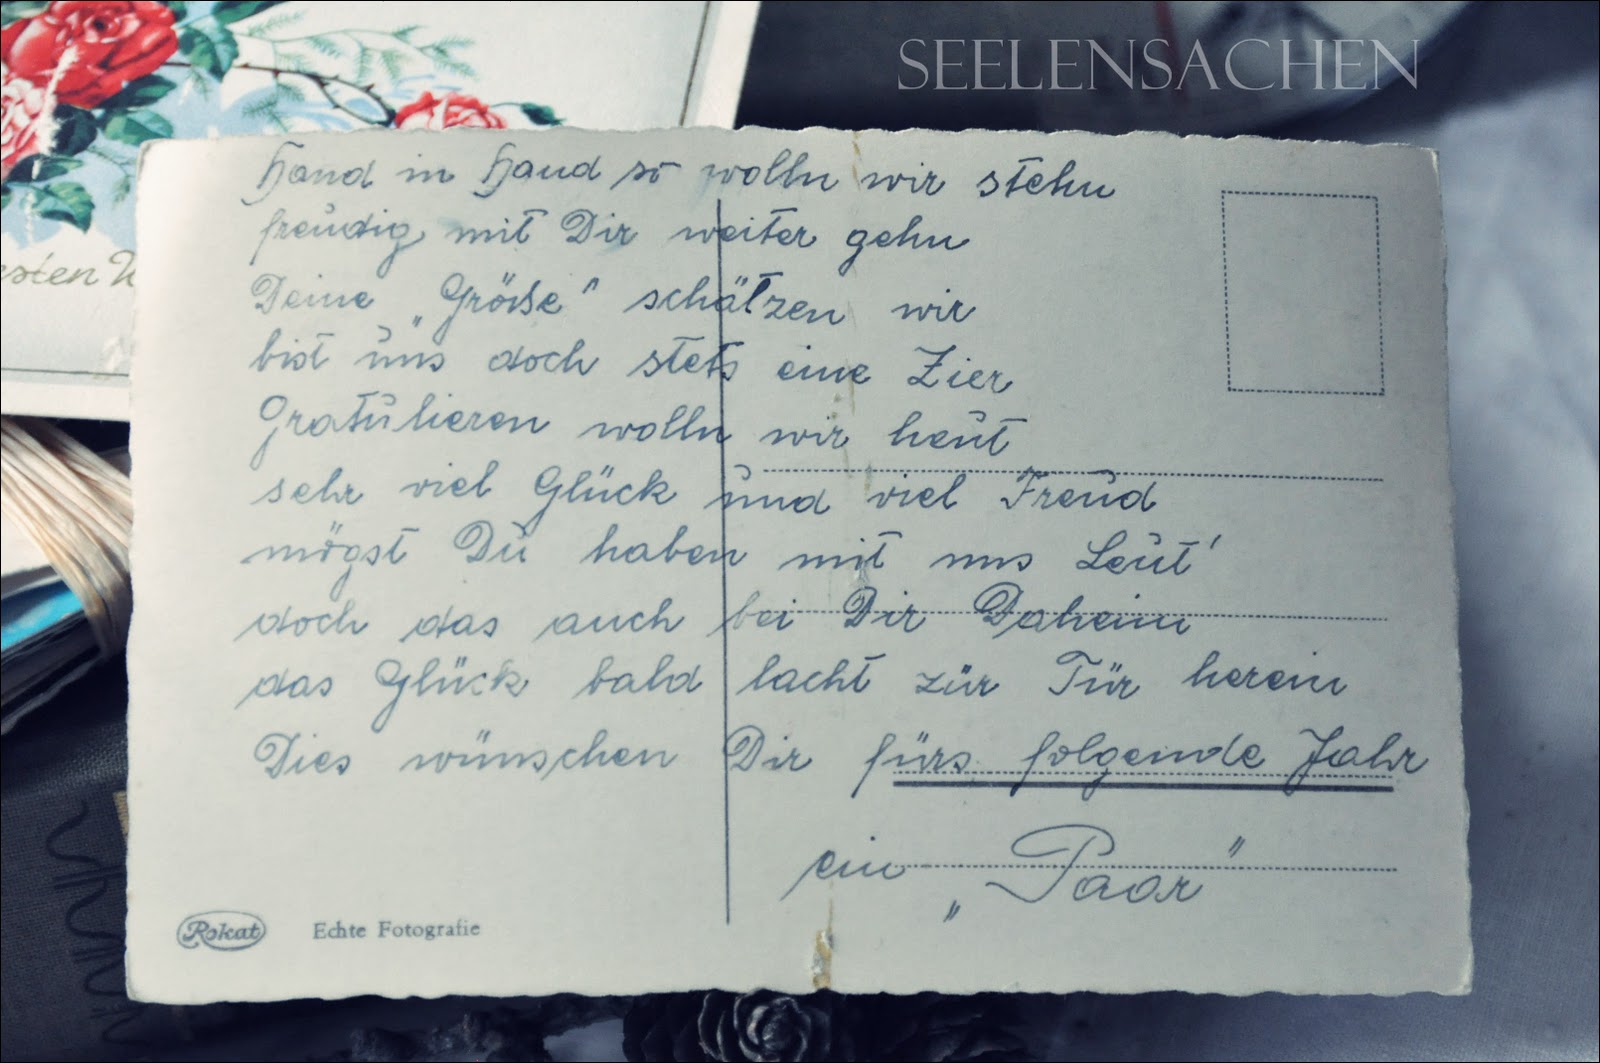 SEELENSACHEN
esten W
Hand in Hand so wolln wir stehn
freudig mit Dir weiter gehn
Deine „Größe" schätzen wir
bist uns doch stets eine Zier
Gratulieren wolln wir heut
sehr viel Glück und viel Freud
mögst Du haben mit uns Leut'
doch das auch bei Dir Daheim
das Glück bald lacht zür Tür herein
Dies wünschen Dir fürs folgende Jahr
ein „Paar"
Rokat Echte Fotografie